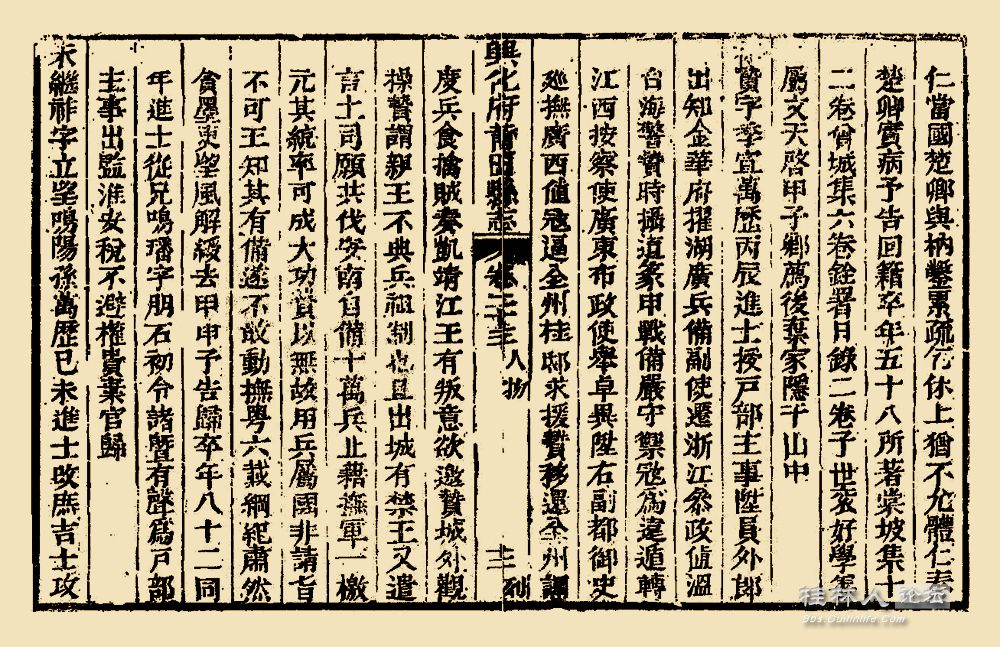 仁當國楚卿與枘鑿累疏乞休上猶不允體仁奏
楚卿實病予告回籍卒年五十八所著裳坡集十
二卷曾城集六卷銓署日錄二卷子世衮好學
屬文天啓甲子鄉薦後棄家隱于山中
贊字季宜萬歷丙辰進士授戸部主事陞員外郎
出知金華府擢湖廣兵備副使遷浙江叅政值溫
台海警贊時攝道象甲戰備嚴守禦寇為違遁轉
江西按察使廣東布政使舉卓異陞右副都御史
廵撫廣西值寇逼全州桂邸求援贊移還全州調
興化府莆田縣志 卷二十三 人物
度兵食擒賊奏凱靖江王有叛意欲邀贊城外觀
操贊謂親王不典兵祖制也且出城有禁王又遣
言土司願共伐安南自備十萬兵止藉撫軍一檄
元其統率可成大功贊以無故用兵屬國非請旨
不可王知其有備遂不敢動撫粤六載綱紀肅然
貪墨吏望風解綬去甲申予告歸卒年八十二同
年進士從兄鳴璠字朋石初令諸暨有聲為戸部
主事出監淮安稅不避權貴棄官歸
繼祚字立望鳴陽孫萬歷己未進士改庶吉士攻
桂林人 论坛
bbs.Guilinlife.com